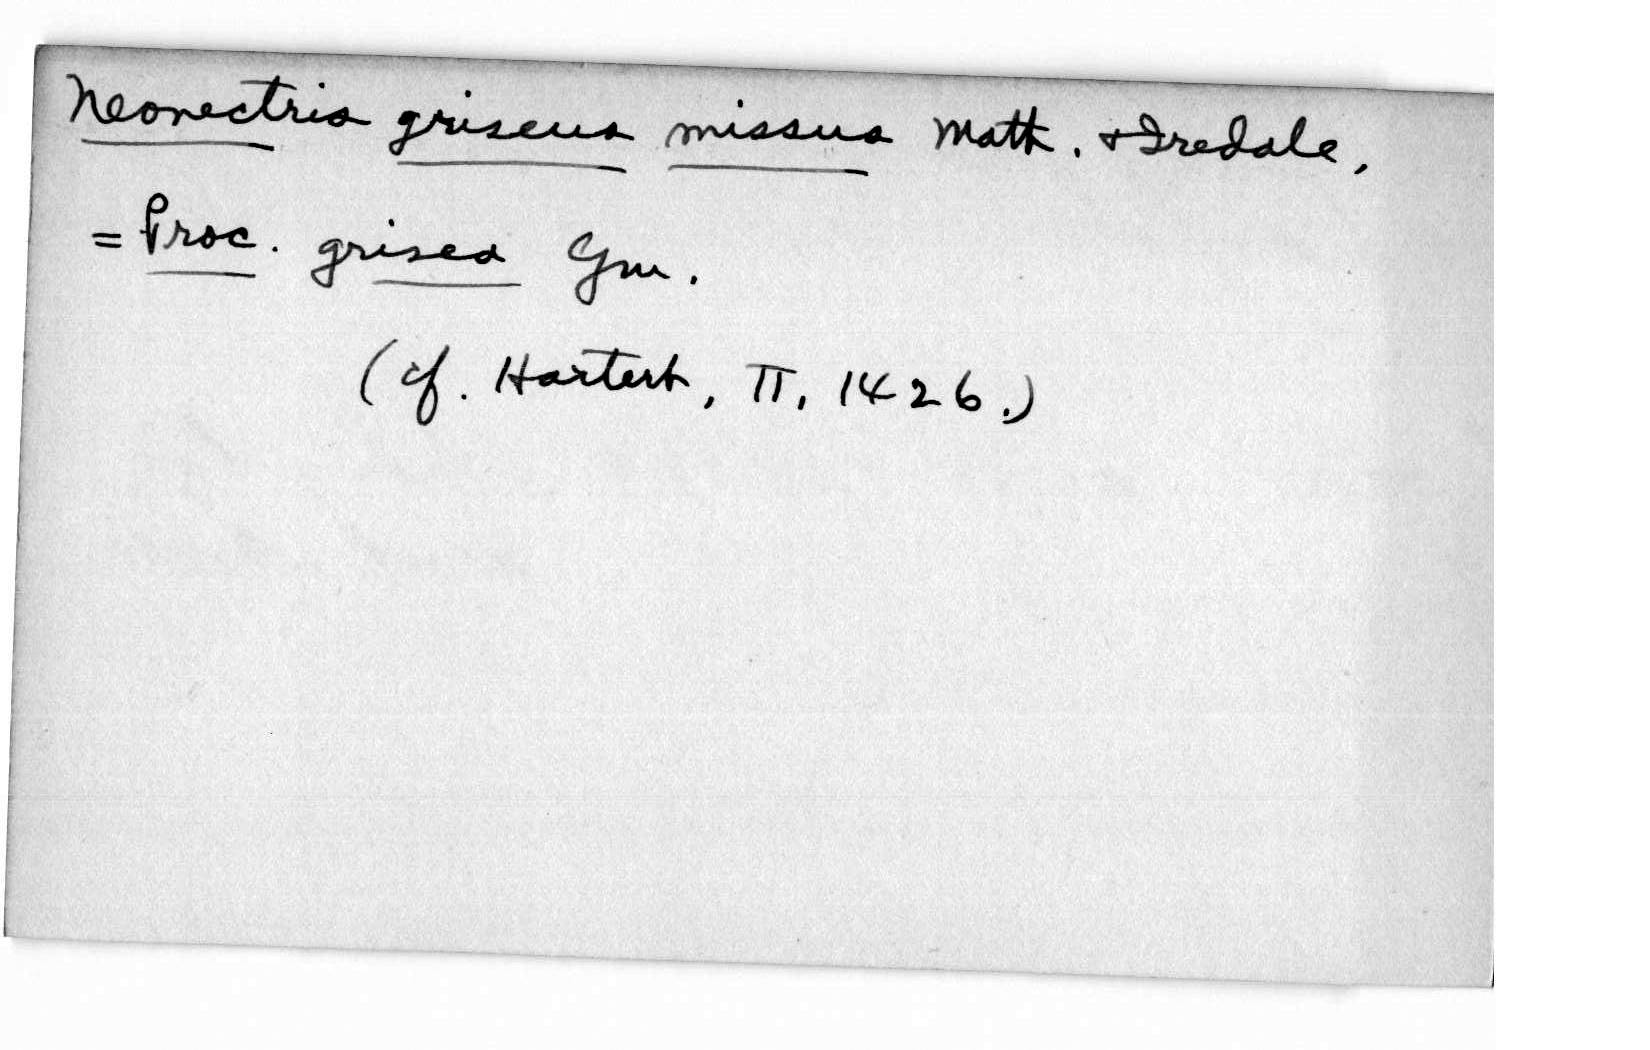 Neonectris griseus missus Math. & Iredale,
= Proc. grisea Gm.
(cf. Hartert, II, 1426.)